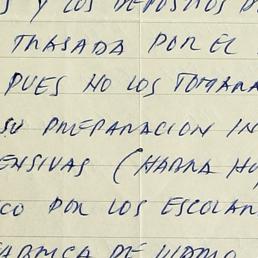 S Y LOS DEPOSITOS D
TRASADA POR EL
PUES NO LOS TOMARA
SU PREPARACION IN
ENSIVAS (HABRA HU
CO POR LOS ESCOLAR
FABRICA DE VIDRIO